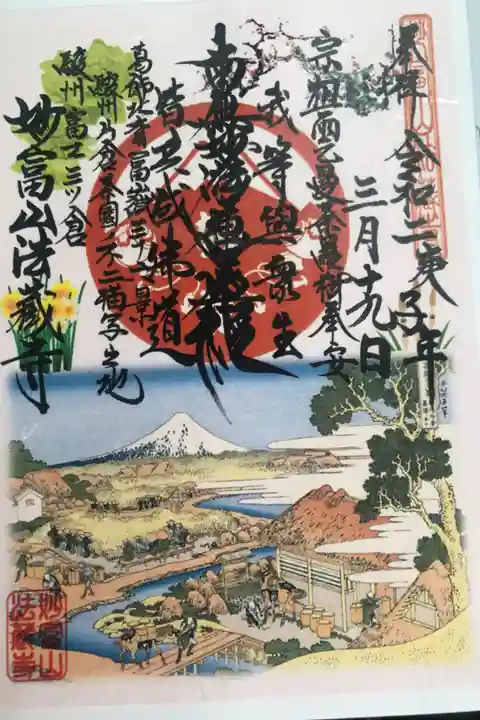 奉拝 令和二庚子年
三月十九日
宗祖
奉安
我等與衆生
南無妙法蓮華経
皆共成佛道
葛飾北斎 富嶽三十六景
駿州片倉茶園ノ不二描写之地
駿州富士三ツ倉
妙富山法蔵寺
妙富山
法蔵寺